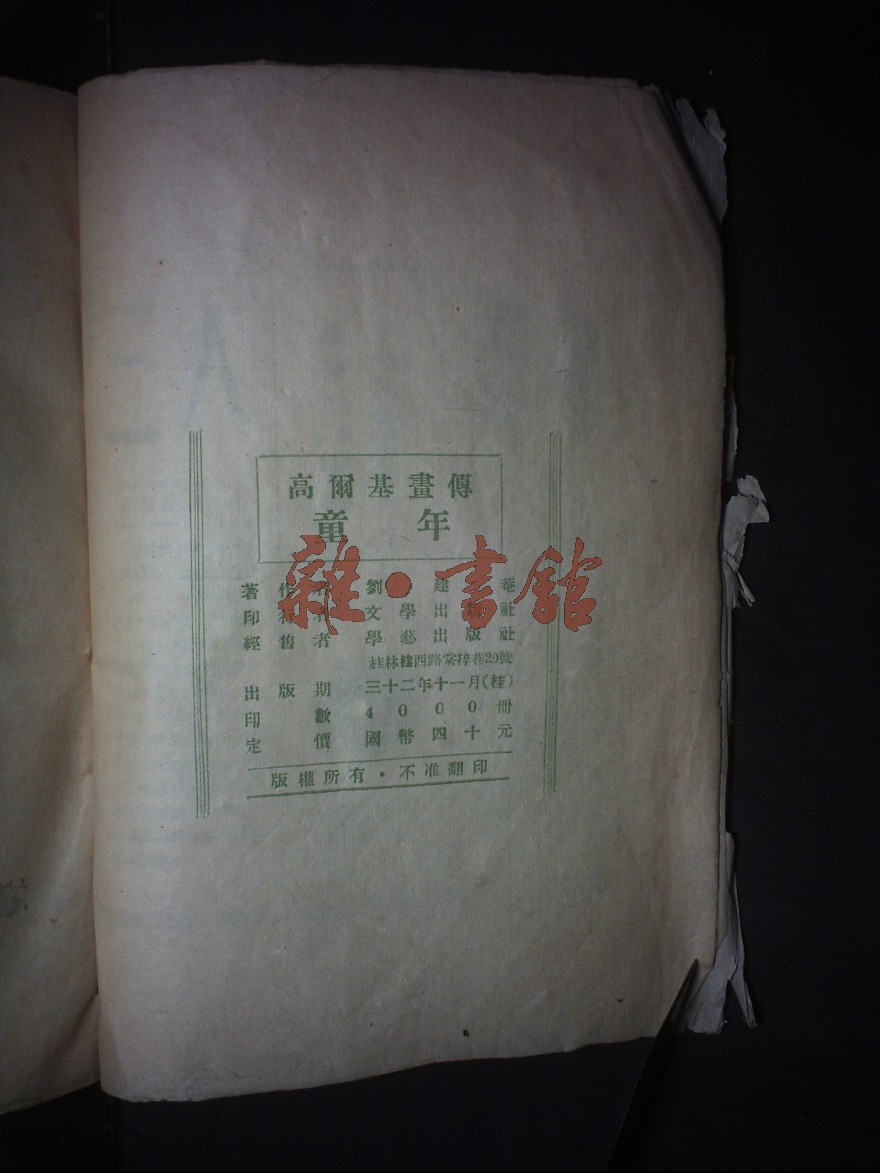 高爾基畫傳
童年
著作者 劉建菴
印行者 文學出版社
經售者 學藝出版社
桂林桂西路棠梓巷20號
出版期 三十二年十一月(桂)
印數 4000冊
定價 國幣四十元
版權所有・不准翻印
雜・書館